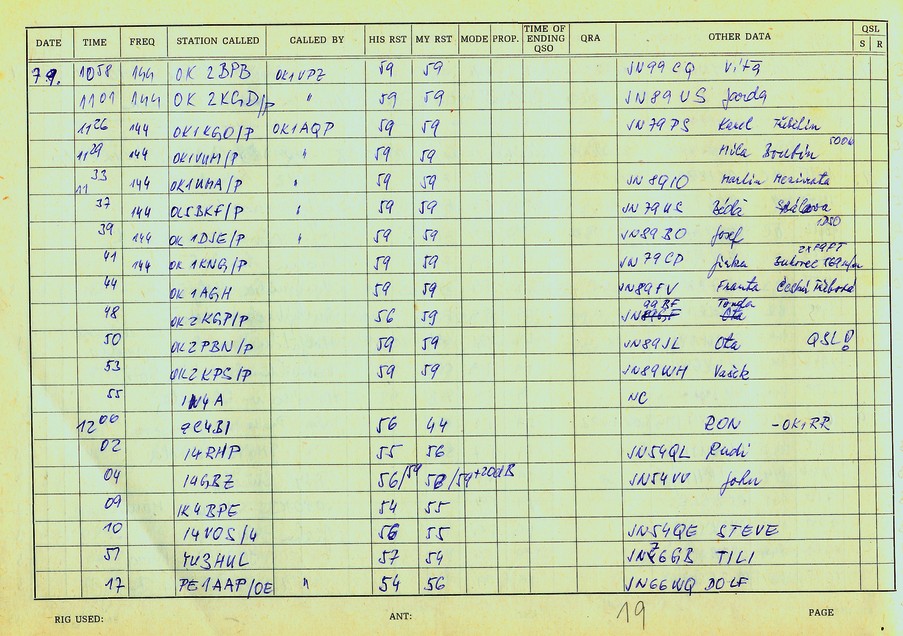 DATE TIME FREQ STATION CALLED CALLED BY HIS RST MY RST MODE PROP. TIME OF ENDING QSO QRA OTHER DATA QSL S R
7.9. 1058 144 OK 2BPB OK1VPZ 59 59 JN99CQ Víťa
1101 144 OK 2KGD/p " 59 59 JN89US Jarda
1126 144 OK1KGO/P OK1AQP 59 59 JN79PS Karel
1129 144 OK1VUM/P " 59 59 Míla Boubín
1133 OK1UMA/P " 59 59 JN89IO Martin
37 144 OL5BKF/P " 59 59 JN79US
39 144 OK 1DJE/P " 59 59 JN89BO Josef
41 144 OK 1KNG/P 59 59 JN79CP Jirka
44 OK 1AGH 59 59 JN89FV Franta Česká Třebová
48 OK2KGP/P 56 59 JN99BF Tonda
50 OK2PBN/P 59 59 JN89JL Ota QSL!
53 OK2KPS/P 59 59 JN89WH Vašek
55 1W4A NC
1200 9C4BI 56 44 RON - OK1RR
02 I4RHP 55 56 JN54QL Rudi
04 I4GBZ 56/59 58/59+20dB JN54VV John
09 IK4BPE 54 55
10 I4VOS/4 56 55 JN54QE STEVE
51 YU3HUL 57 54 JN76GB TILI
17 PE1AAP/OE " 54 56 JN66WQ DOLF
RIG USED: ANT: 19 PAGE